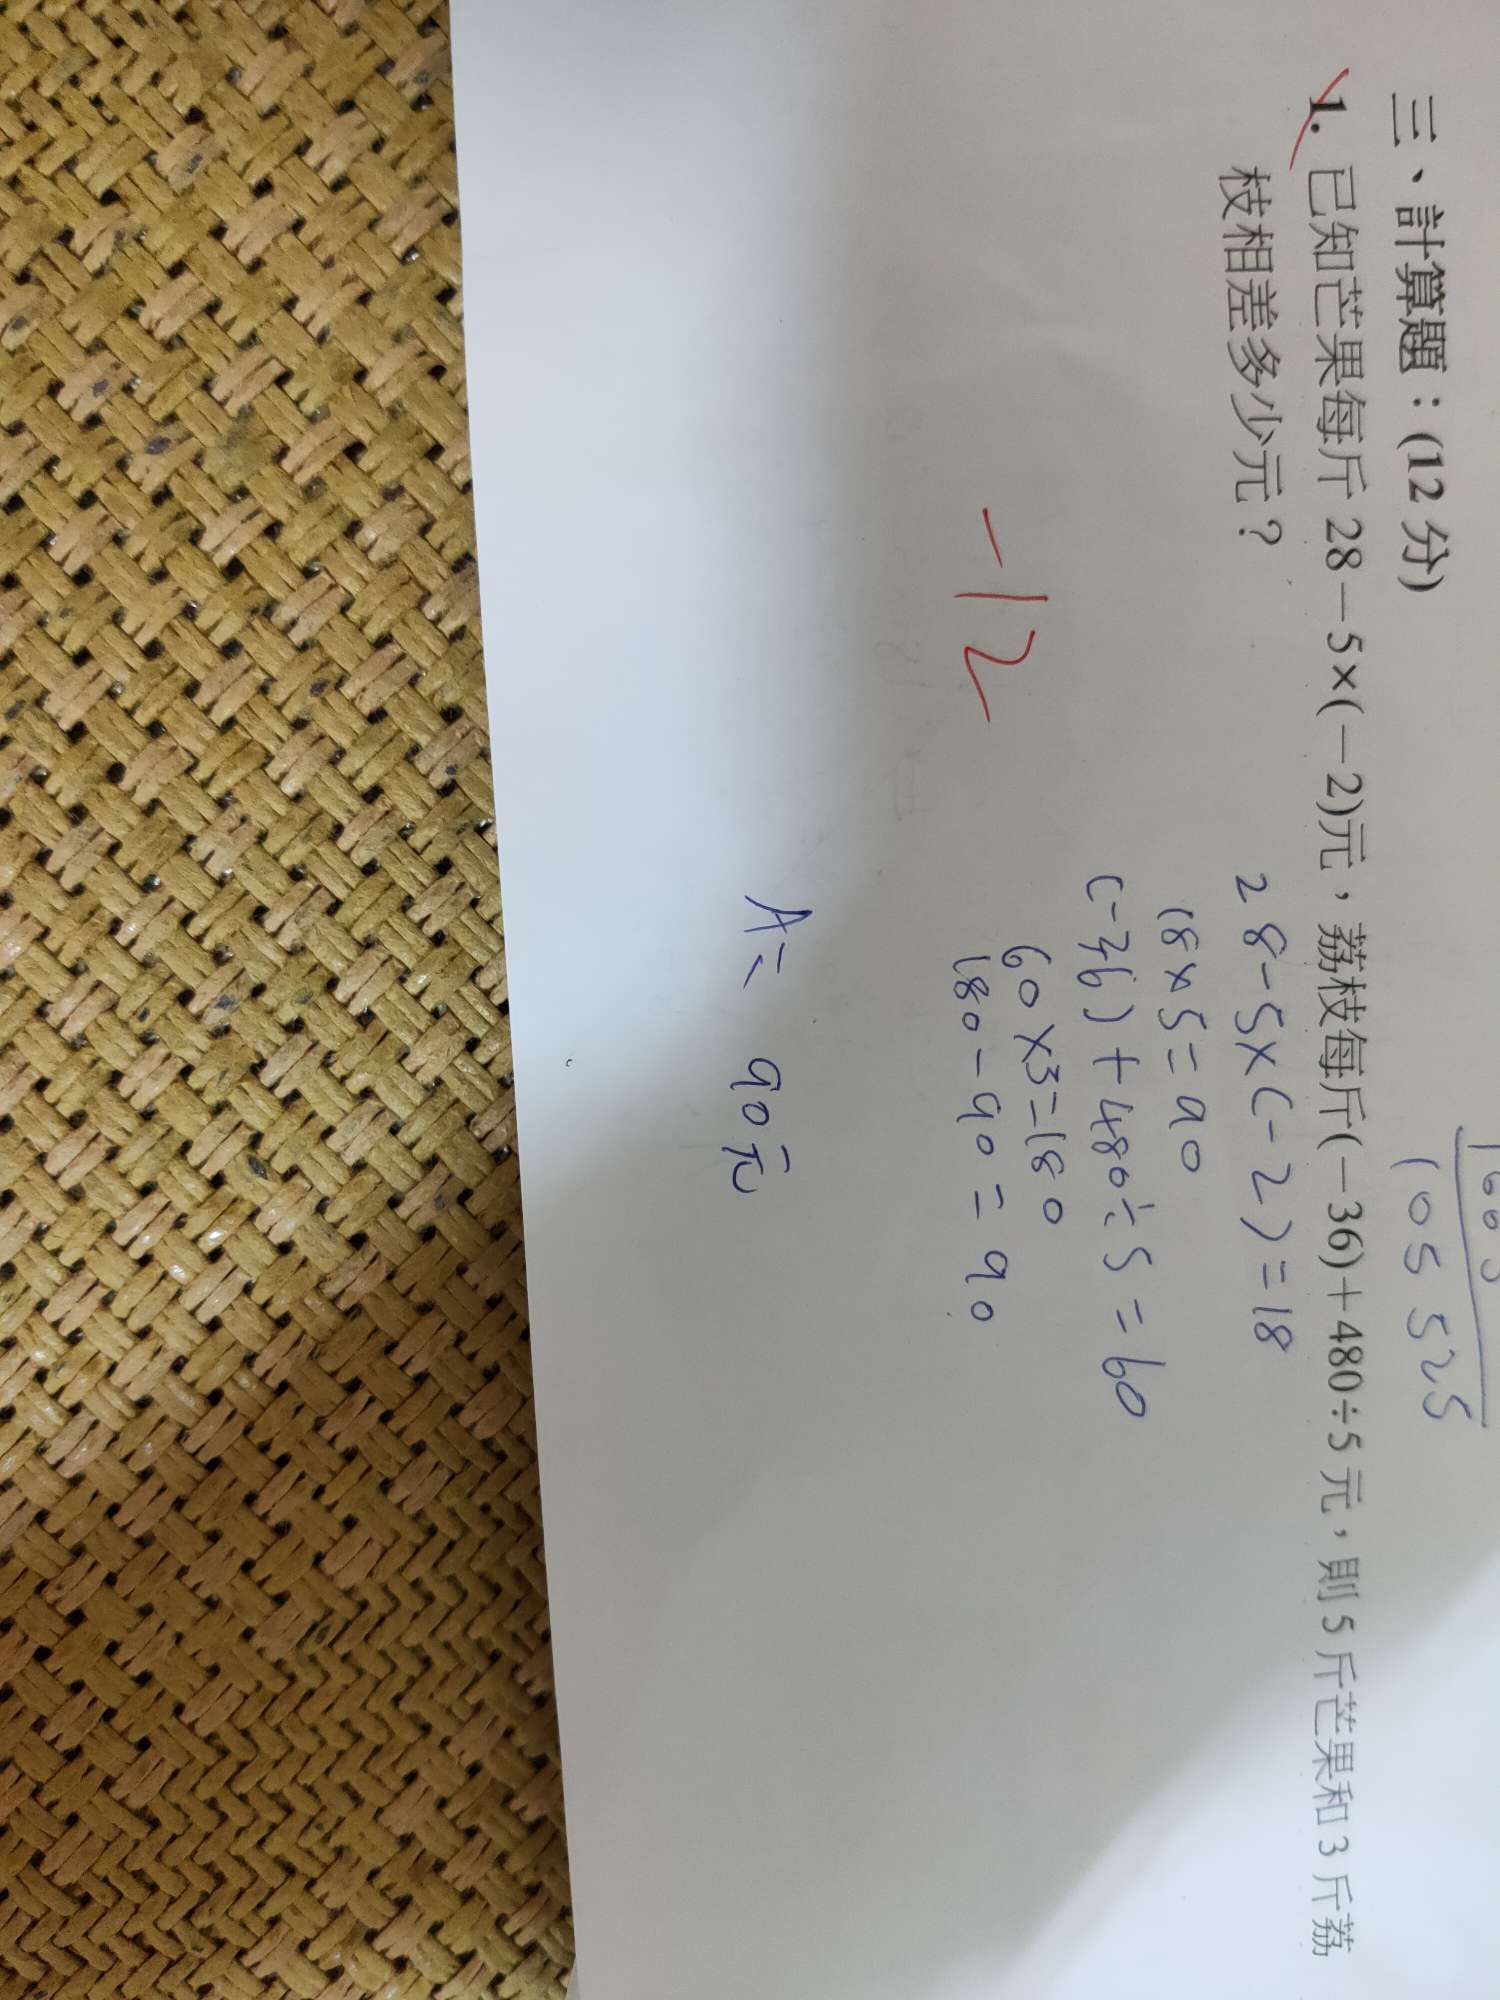 1665
10 5 525
三、計算題：(12 分)
1. 已知芒果每斤 28－5×(－2)元，荔枝每斤(－36)＋480÷5 元，則 5 斤芒果和 3 斤荔
枝相差多少元？
28-5×(-2)=18
18×5=90
(-36)+480÷5=60
60×3=180
180-90=90
-12
A= 90元